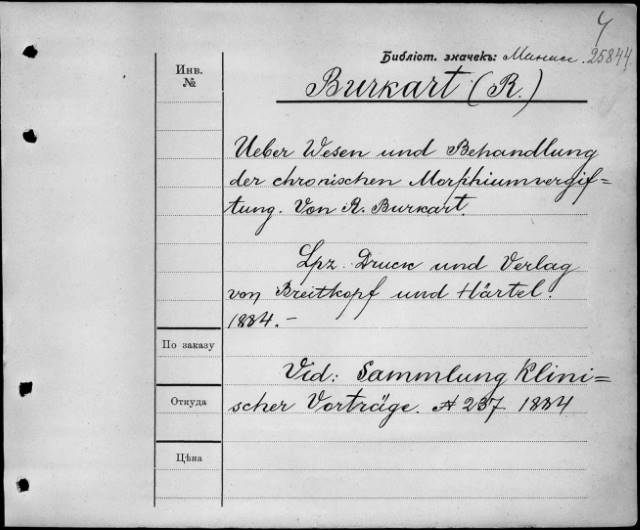 4
Библіот. значекъ: 25844.
Инв.
№
Burkart (R.)
Ueber Wesen und Behandlung
der chronischen Morphiumvergif-
tung. Von R. Burkart.
Lpz. Druck und Verlag
von Breitkopf und Härtel.
1884. –
По заказу
Vid: Sammlung Klini=
scher Vorträge. № 237 1884
Откуда
Цѣна